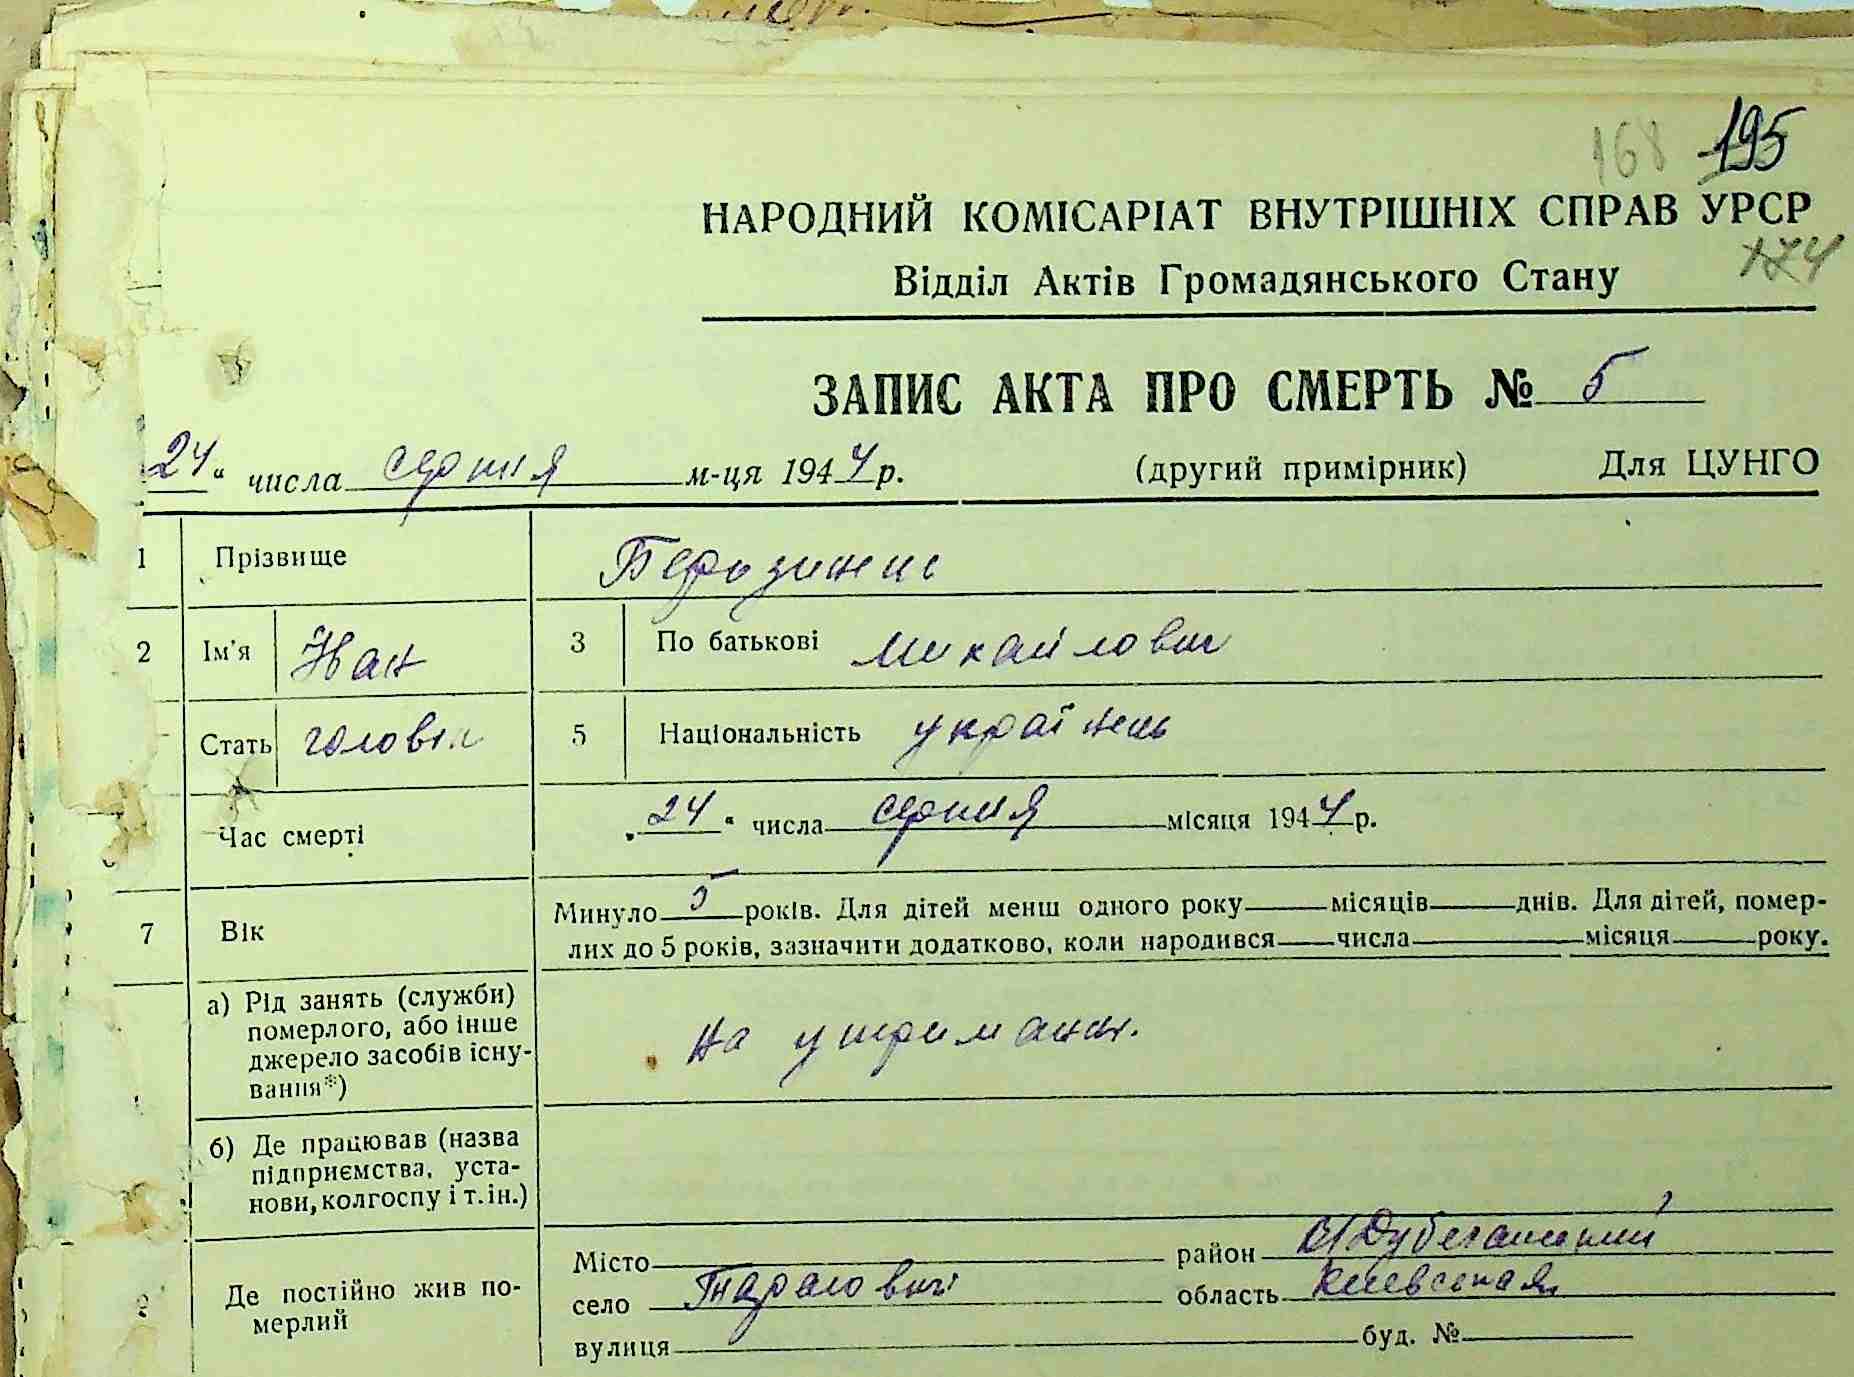 168 195
НАРОДНИЙ КОМІСАРІАТ ВНУТРІШНІХ СПРАВ УРСР
174
Відділ Актів Громадянського Стану
ЗАПИС АКТА ПРО СМЕРТЬ № 5
24 “ числа серпня м-ця 1944 р. (другий примірник) Для ЦУНГО
1 Прізвище
2 Ім’я Иван 3 По батькові Михайлович
Стать головіч 5 Національність українець
Час смерті „ 24 “ числа серпня місяця 1944 р.
7 Вік Минуло 5 років. Для дітей менш одного року місяців днів. Для дітей, помер-
лих до 5 років, зазначити додатково, коли народився числа місяця року.
а) Рід занять (служби)
померлого, або інше
джерело засобів існу-
вання*)
на утриманні.
б) Де працював (назва
підприємства, уста-
нови, колгоспу і т.ін.)
8 Де постійно жив по-
мерлий
Місто район
село Тарасовичі область Киевская
вулиця буд. №